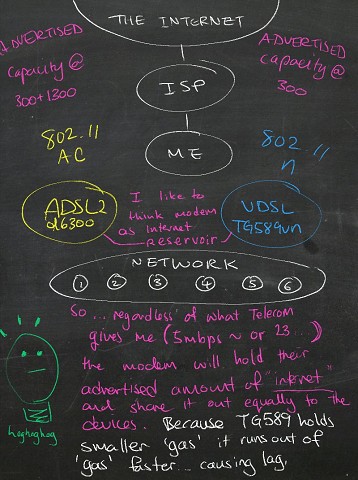 THE INTERNET
ADVERTISED
capacity @
300+1300
ADVERTISED
capacity @
300
ISP
802.11
AC
ME
802.11
n
ADSL2
d6300
I like to
think modem
as Internet
reservoir
VDSL
TG589vn
NETWORK
1 2 3 4 5 6
So... regardless of what Telecom
gives me (5mbps ~ or 23...)
the modem will hold their
advertised amount of "internet"
and share it out equally to the
devices. Because TG589 holds
smaller 'gas' it runs out of
'gas' faster... causing lag.